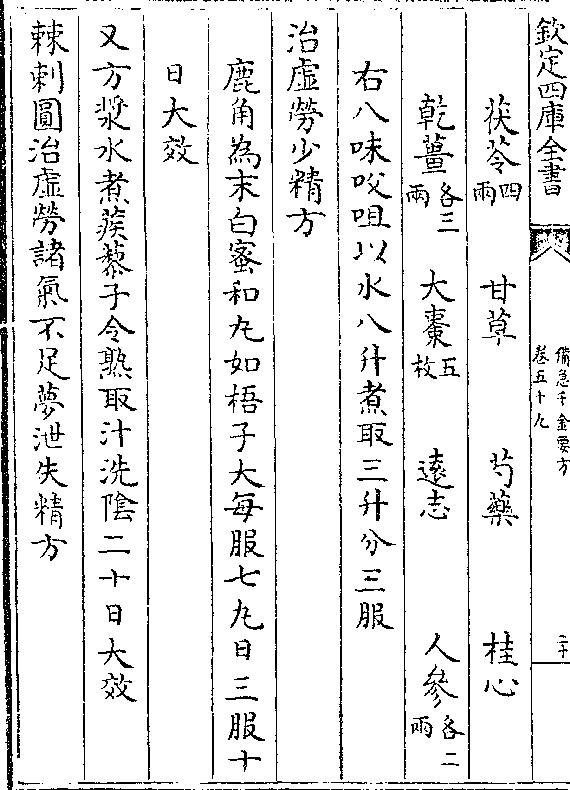 欽定四庫全書
備急千金要方
卷五十九
二十
茯苓四兩 甘草 芍藥 桂心
乾薑各三兩 大棗五枚 遠志 人參各二兩
右八味㕮咀以水八升煮取三升分三服
治虛勞少精方
鹿角為末白蜜和丸如梧子大每服七丸日三服十
日大效
又方漿水煮蒺藜子令熟取汁洗陰二十日大效
棘刺圓治虛勞諸氣不足夢泄失精方